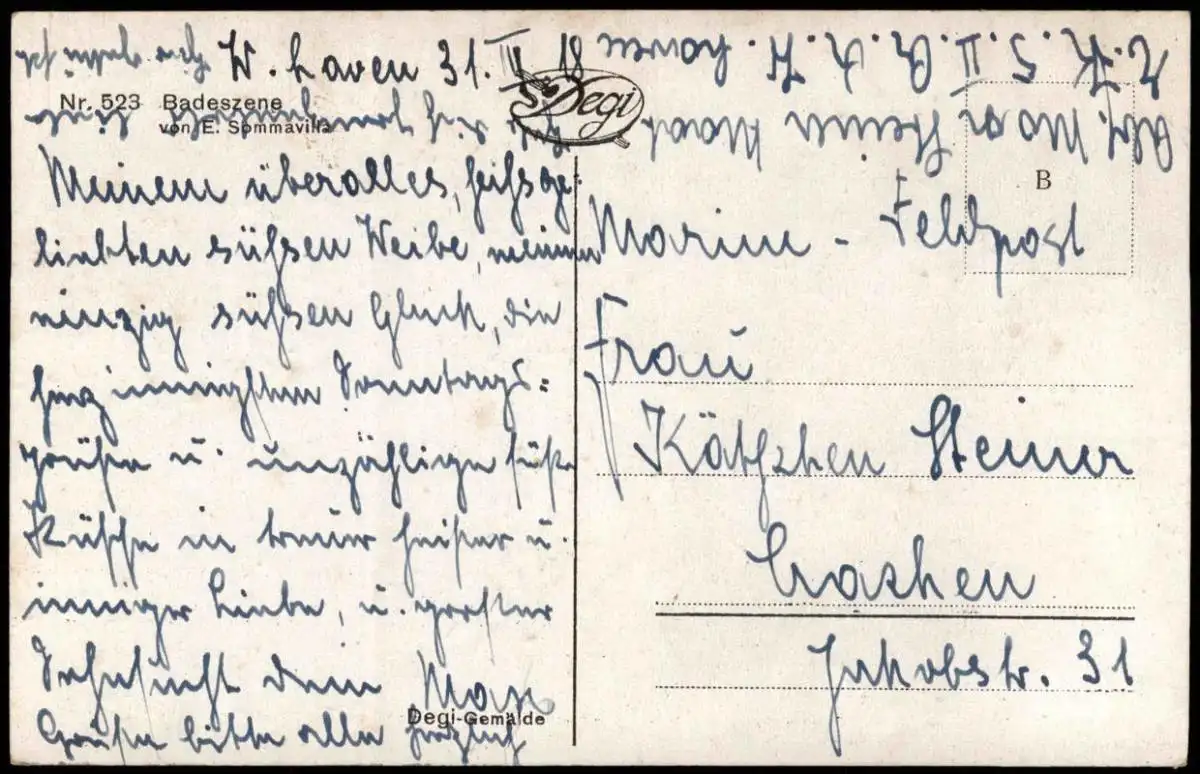 W. haven 31. III 18
Nr. 523 Badeszene
von E. Sommavilla
Degi
Meinem überalles, heissge-
liebten süssen Weibe, meinem
einzig süssen Glück, die
herzinnigsten Sonntags-
grüsse u. unzählige süsse
Küsse in treuer heisser u.
inniger Liebe, u. grosser
Sehnsucht dein Max
Grüsse bitte alle herzlich
Degi-Gemälde
Abs. Max Steiner
B
Marine - Feldpost
Frau
Käthchen Steiner
Aachen
Jakobstr. 31